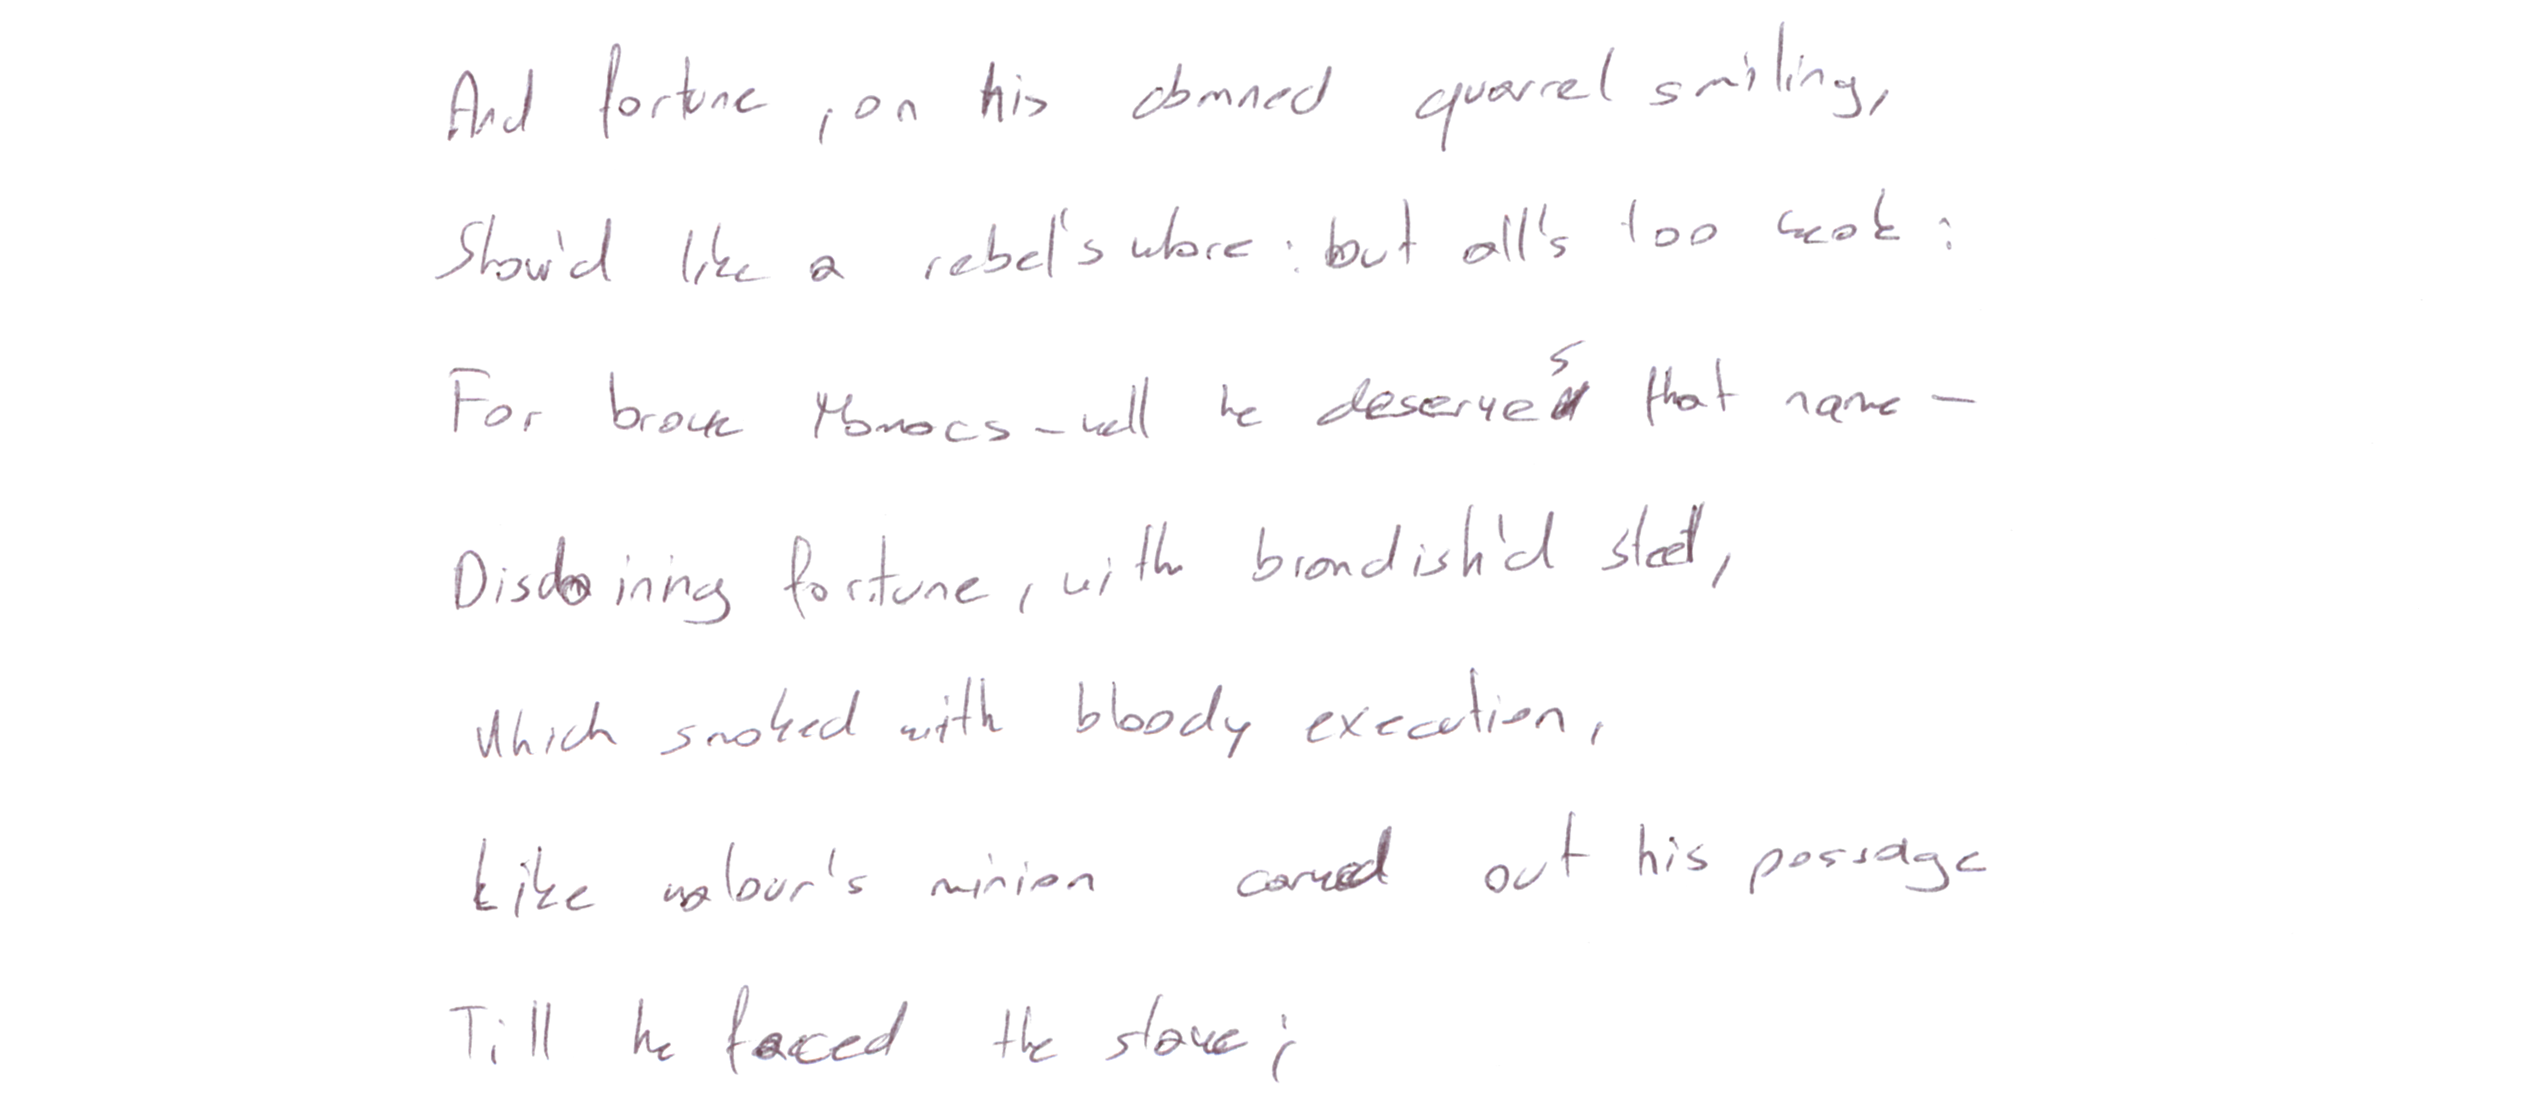 And fortune, on his damned quarrel smiling,
Show'd like a rebel's whore: but all's too weak:
For brave Macbeth - well he deserves that name -
Disdaining fortune, with brandish'd steel,
Which smoked with bloody execution,
Like valour's minion carved out his passage
Till he faced the slave;